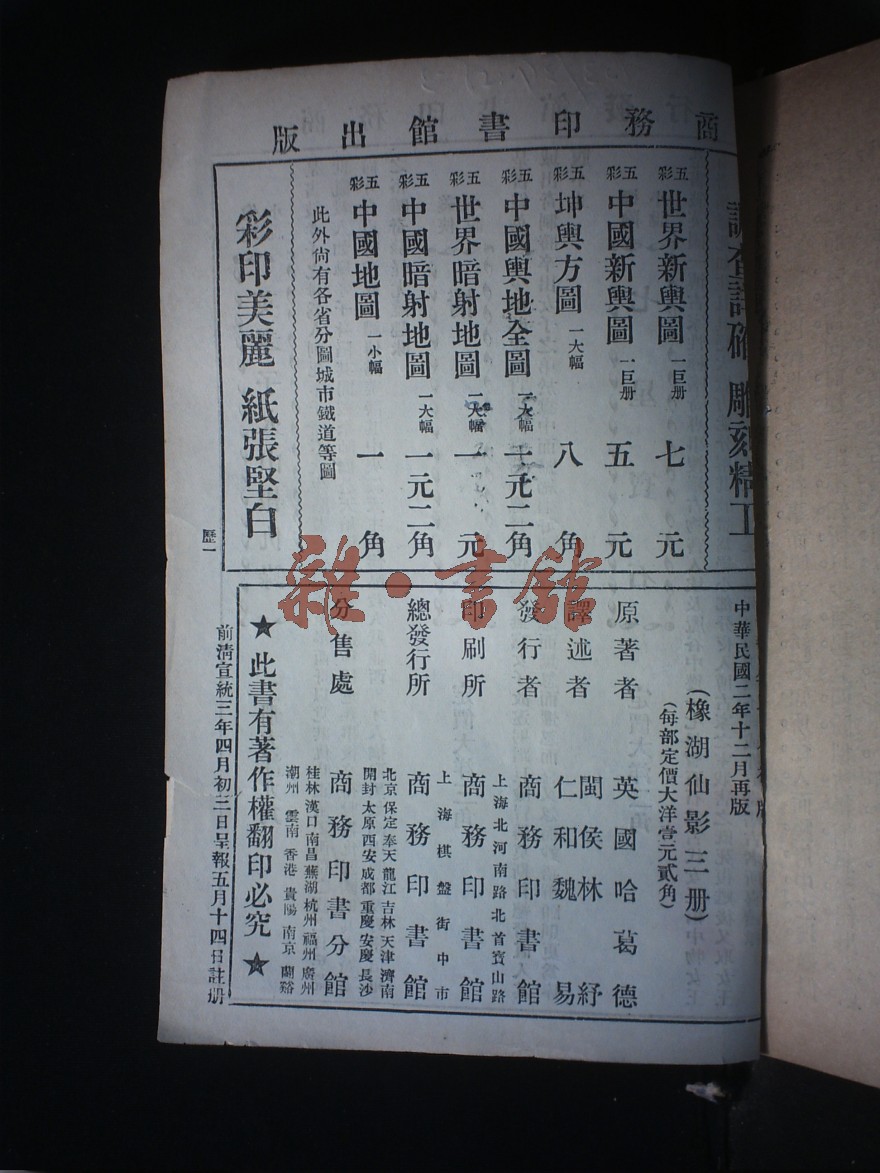 商務印書館出版
調查詳確 雕刻精工
五彩 世界新輿圖 一巨册 七元
五彩 中國新輿圖 一巨册 五元
五彩 坤輿方圖 一大幅 八角
五彩 中國輿地全圖 一大幅 一元二角
五彩 世界暗射地圖 一大幅 一元
五彩 中國暗射地圖 一大幅 一元二角
五彩 中國地圖 一小幅 一角
此外尙有各省分圖城市鐵道等圖
彩印美麗 紙張堅白
歷一
中華民國二年十二月再版
（橡湖仙影三册）
（每部定價大洋壹元貳角）
原著者 英國哈葛德
譯述者 閩侯林紓
仁和魏易
發行者 商務印書館
上海北河南路北首寶山路
印刷所 商務印書館
上海棋盤街中市
總發行所 商務印書館
北京保定奉天龍江吉林天津濟南
開封太原西安成都重慶安慶長沙
分售處 商務印書分館
桂林漢口南昌蕪湖杭州福州廣州
潮州 雲南 香港 貴陽 南京 蘭谿
★此書有著作權翻印必究★
前清宣統三年四月初三日呈報五月十四日註册
雜·書館